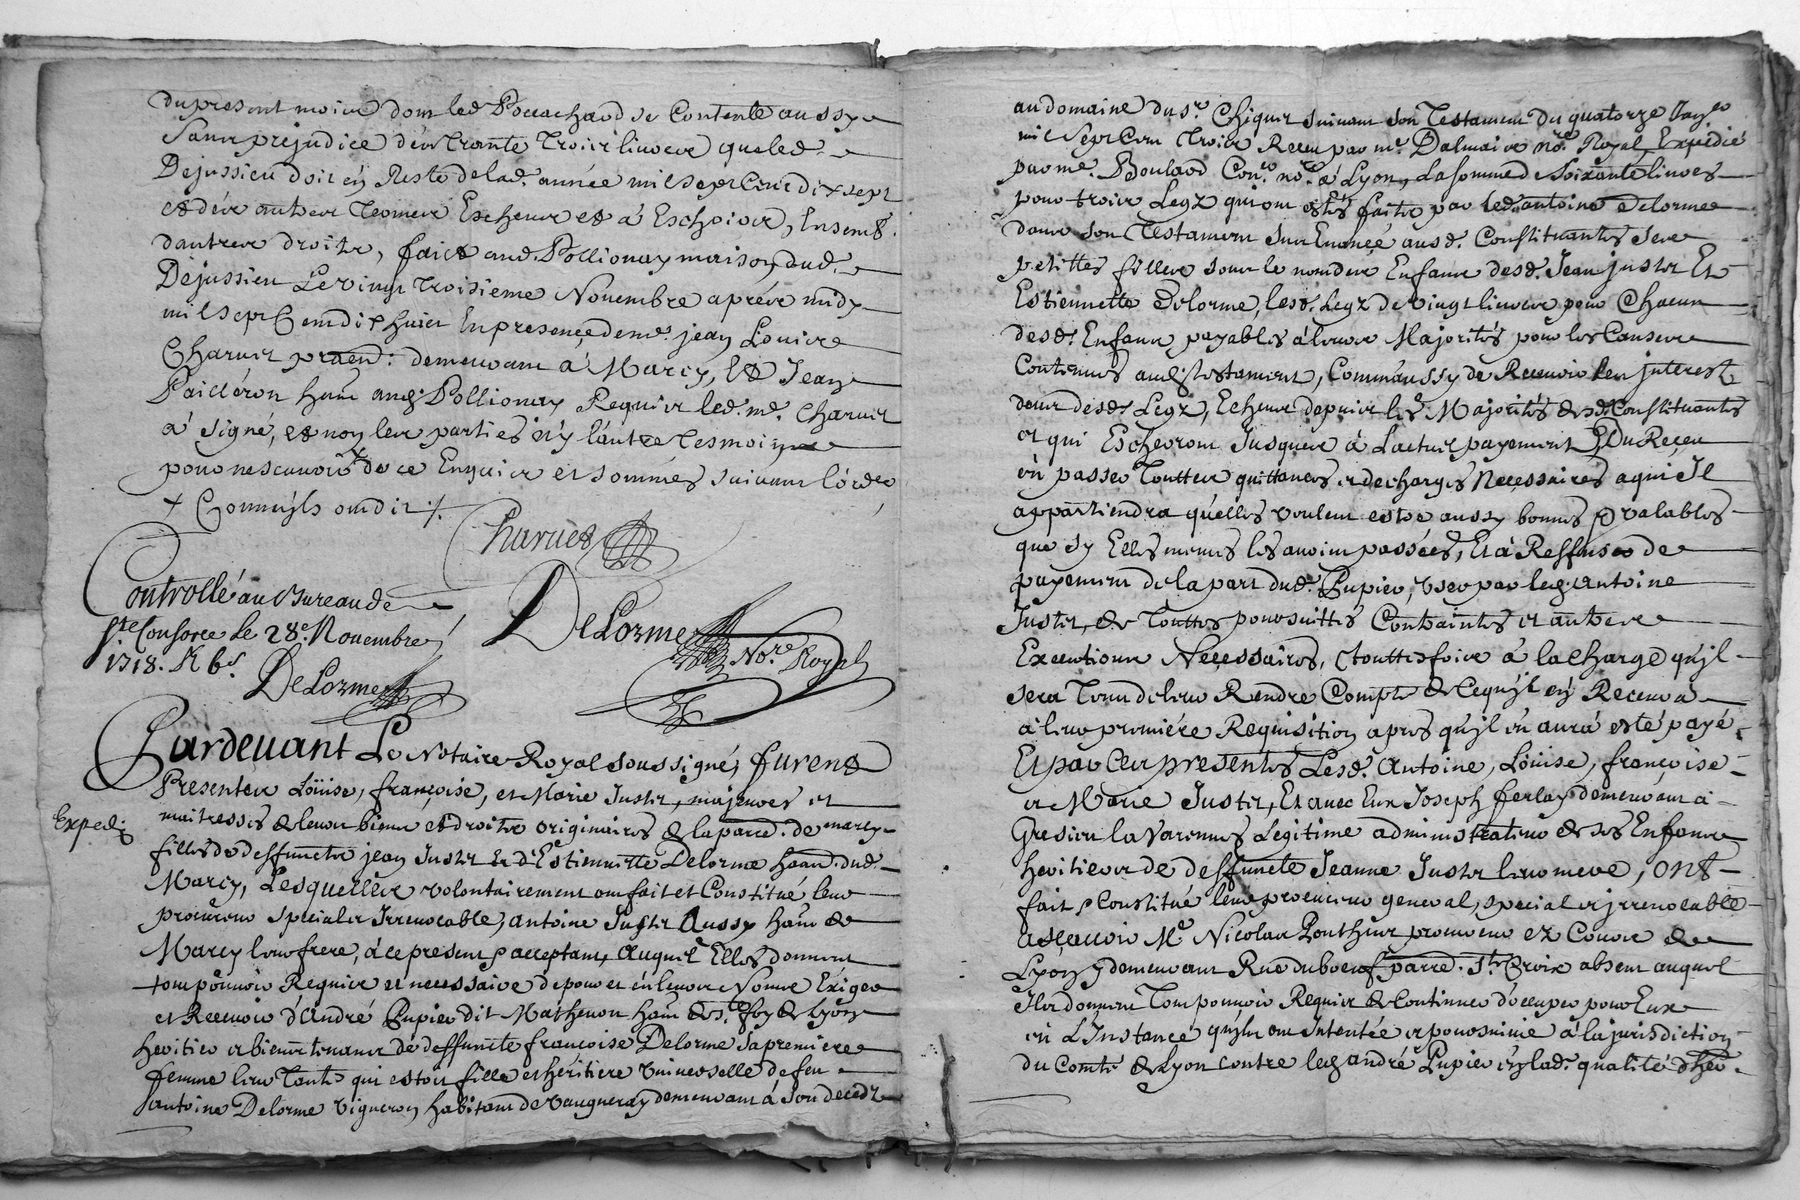 du present moicue dont led. Poccachard se Contente aussy
Sans prejudice des Trante Trois livres que led.
Dejussieu doit en Reste de lad. année mil sept Cent dix sept
et des autres Termes Escheus et à Eschoier, Ensemb.
dautres droits, fait aud. Pollionay maison dud.
Dejussieu Le vingt Troisieme Novembre aprés midy
mil sept Cent dix huict En presence de me. jean Louis
Charuet praen: demeurant à Marcy, et Jean
Pailléron habt. aud. Pollionay Requis led. me. Charuet
à signé, et non les parties n'y l'autre Tesmoin
pour ne scauoir de ce Enquis et sommés suiuant l'ordce
+ Comm'ils ont dit ./.
Charuet
Controllé au Bureau de
Ste. Consorce le 28e. Novembre
1718. R 6s.
DeLorme
DeLorme
No.re Royal
Pardeuant Le Notaire Royal soussigné, furent
Exped.
Presentes Loüise, françoise, et Marie Juttet, majeures et
maitresses de leurs biens et droits originaires de la parr. de marcy
filles de deffuncts jean Juttet et d'Estiennette Delorme habt. dud.
Marcy, Lesquelles volontairement ont fait et Constitué leur
procureur special et Irreuocable, antoine Juttet Aussy habt. de
Marcy leur frere, à ce present et acceptant, Auquel Elles donnent
tout pouuoir Requis et necessaire de pour et en leurs Noms Exiger
et Receuoir d'André Pupier dit Matheuon habt. de St. foy de Lyon
heritier et biens tenant de deffuncte françoise Delorme sa premiere
femme leur Tante qui estoit fille et héritiere vniuerselle de feu
antoine Delorme vigneron habitant de vaugneray demeurant à son decedz
au domaine du sr. Chiquet suiuant son Testament du quatorze Jan.er
mil Sept Cent Trois Receu par me. Dalmais no.re Royal, Expédié
par me. Boulard Con.er no.re à Lyon, La somme de Soixante liures
pour trois Legz qui ont estés faits par led. antoine Delorme
dans son Testament sus Enoncé ausd. Constituantes ses
petittes filles sous le nom des Enfans desd. Jean juttet Et
Estiennette Delorme, lesd. Legz de vingt liures pour Chacun
desd. Enfans payables à leurs Majorités pour les Causes
Contenues aud. testament, Comm'aussy de Receuoir les jnterest
deux desd. Legz, Echeus depuis les Majorités desd. Constituantes
et qui Escheront Jusques à L'actuel payement, Du Receu
en passer Touttes quittances et decharges Necessaires a qui Il
appartiendra qu'elles veulent estre aussy bonnes et valables
que sy Elles mêmes les auoint passées, Et à Reffus de
payement de la part dud. Pupier, vser par led. antoine
Juttet, de Touttes poursuittes Contraintes et autres
Executions Necessaires, touttesfois à la charge qu'jl
sera Tenu de leur Rendre Compte de Ce qu'jl en Receura
à leur première Requisition apres qu'jl en aura esté payé.
Et par Ces presentes Lesd. Antoine, Loüise, françoise
et Marie Juttet, Et auec Eux Joseph ferlay demeurant à
Gresieu la Varennes Legitime administrateur de ses Enfans
heritiers de deffuncte Jeanne Juttet leur mere, ont
fait et Constitué leur procureur general, special et jrreuocable
asçauoir Me. Nicolas Ponthus procureur ez Cours de
Lyon y demeurant Rue du boeuf parre. Ste. Croix absent auquel
Ils donnent Tout pouuoir Requis de Continuer d'occuper pour Eux
en L'Instance qu'jls ont Intentée et poursuiuie à la jurisdiction
du Comté de Lyon contre led. andré Pupier en lad. qualité d'her.